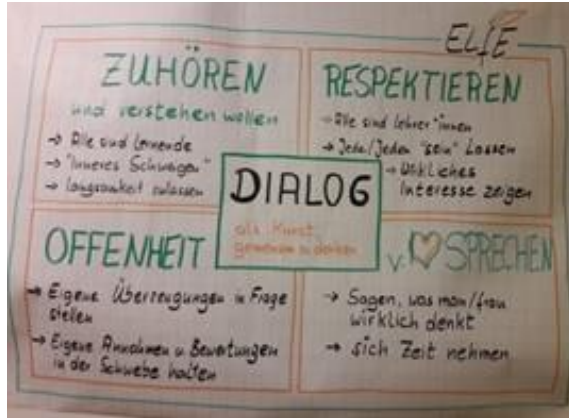 ELIE
ZUHÖREN
und verstehen wollen
→ Alle sind Lernende
→ "Inneres Schweigen"
→ Langsamkeit zulassen
RESPEKTIEREN
→ Alle sind Lehrer*innen
→ Jede/Jeden "sein" lassen
→ Wirkliches
Interesse zeigen
DIALOG
als Kunst
gemeinsam zu denken
OFFENHEIT
→ Eigene Überzeugungen in Frage
stellen
→ Eigene Annahmen u. Bewertungen
in der Schwebe halten
v. ♡ SPRECHEN
→ Sagen, was man/frau
wirklich denkt
→ sich Zeit nehmen